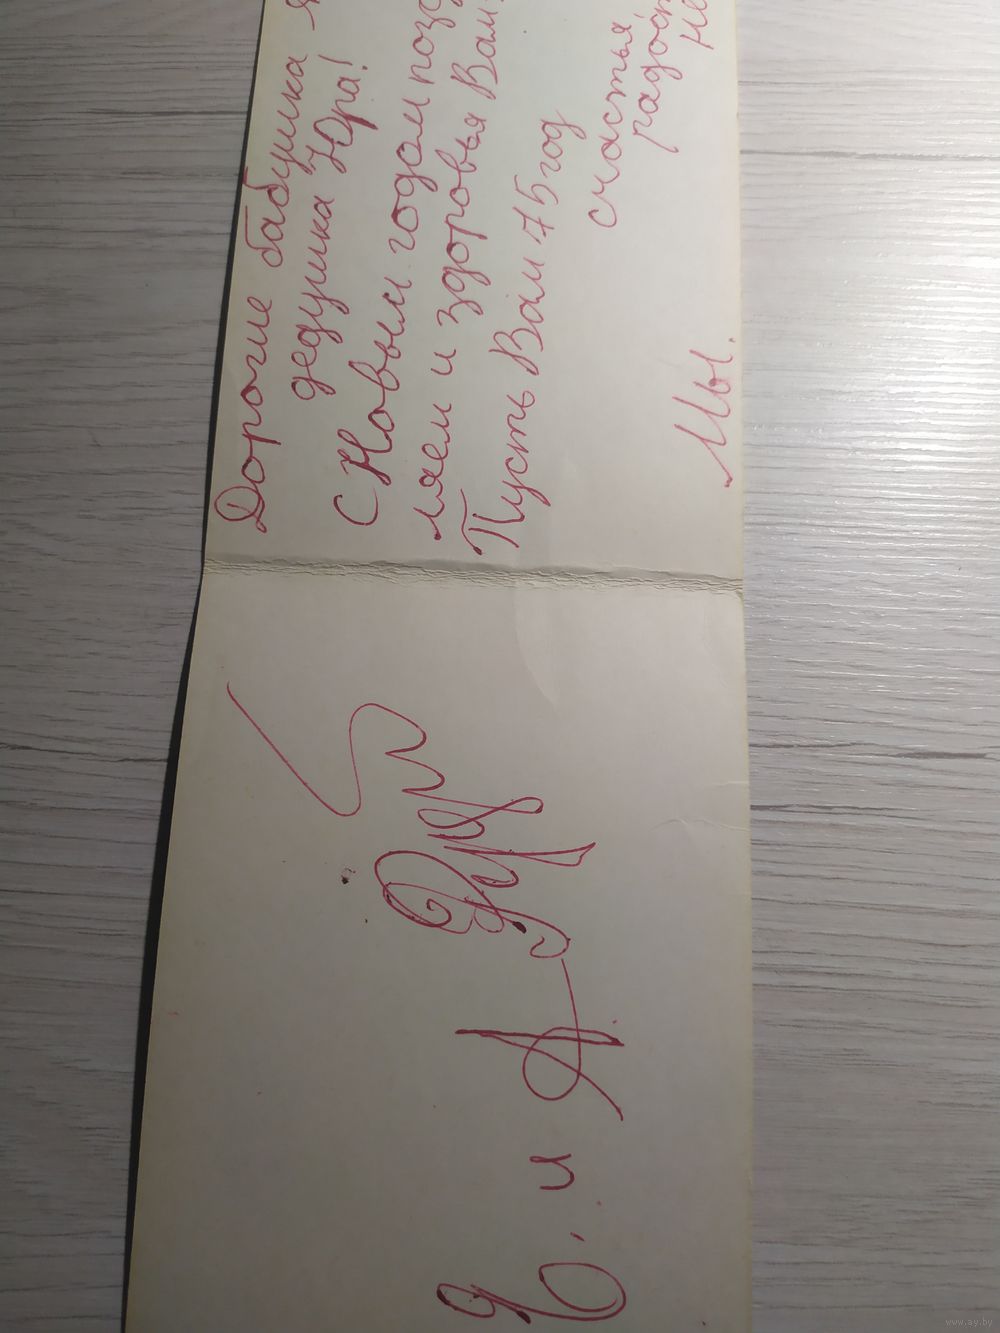 Дорогие бабушка
дедушка Юра!
С Новым годом позд
ляем и здоровья Вам
Пусть Вам 75 год
счастья,
радост
не
Мы.
и А
www.ay.by